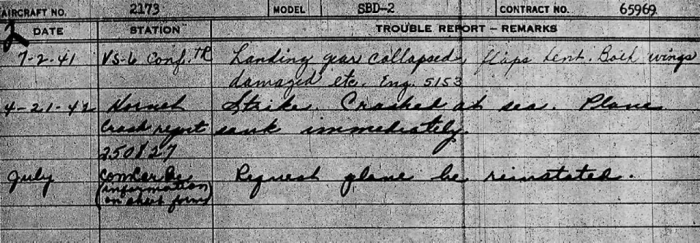 AIRCRAFT NO. 2173 MODEL SBD-2 CONTRACT NO. 65969
DATE STATION TROUBLE REPORT – REMARKS
7-2-41 VS-6 Conf. TR Landing gear collapsed, flaps bent. Both wings
damaged etc. Eng. 5153
4-21-42 Hornet Strike. Crashed at sea. Plane
Crash report sank immediately.
250827
July Request plane be reinstated.
(information
on sheet form)